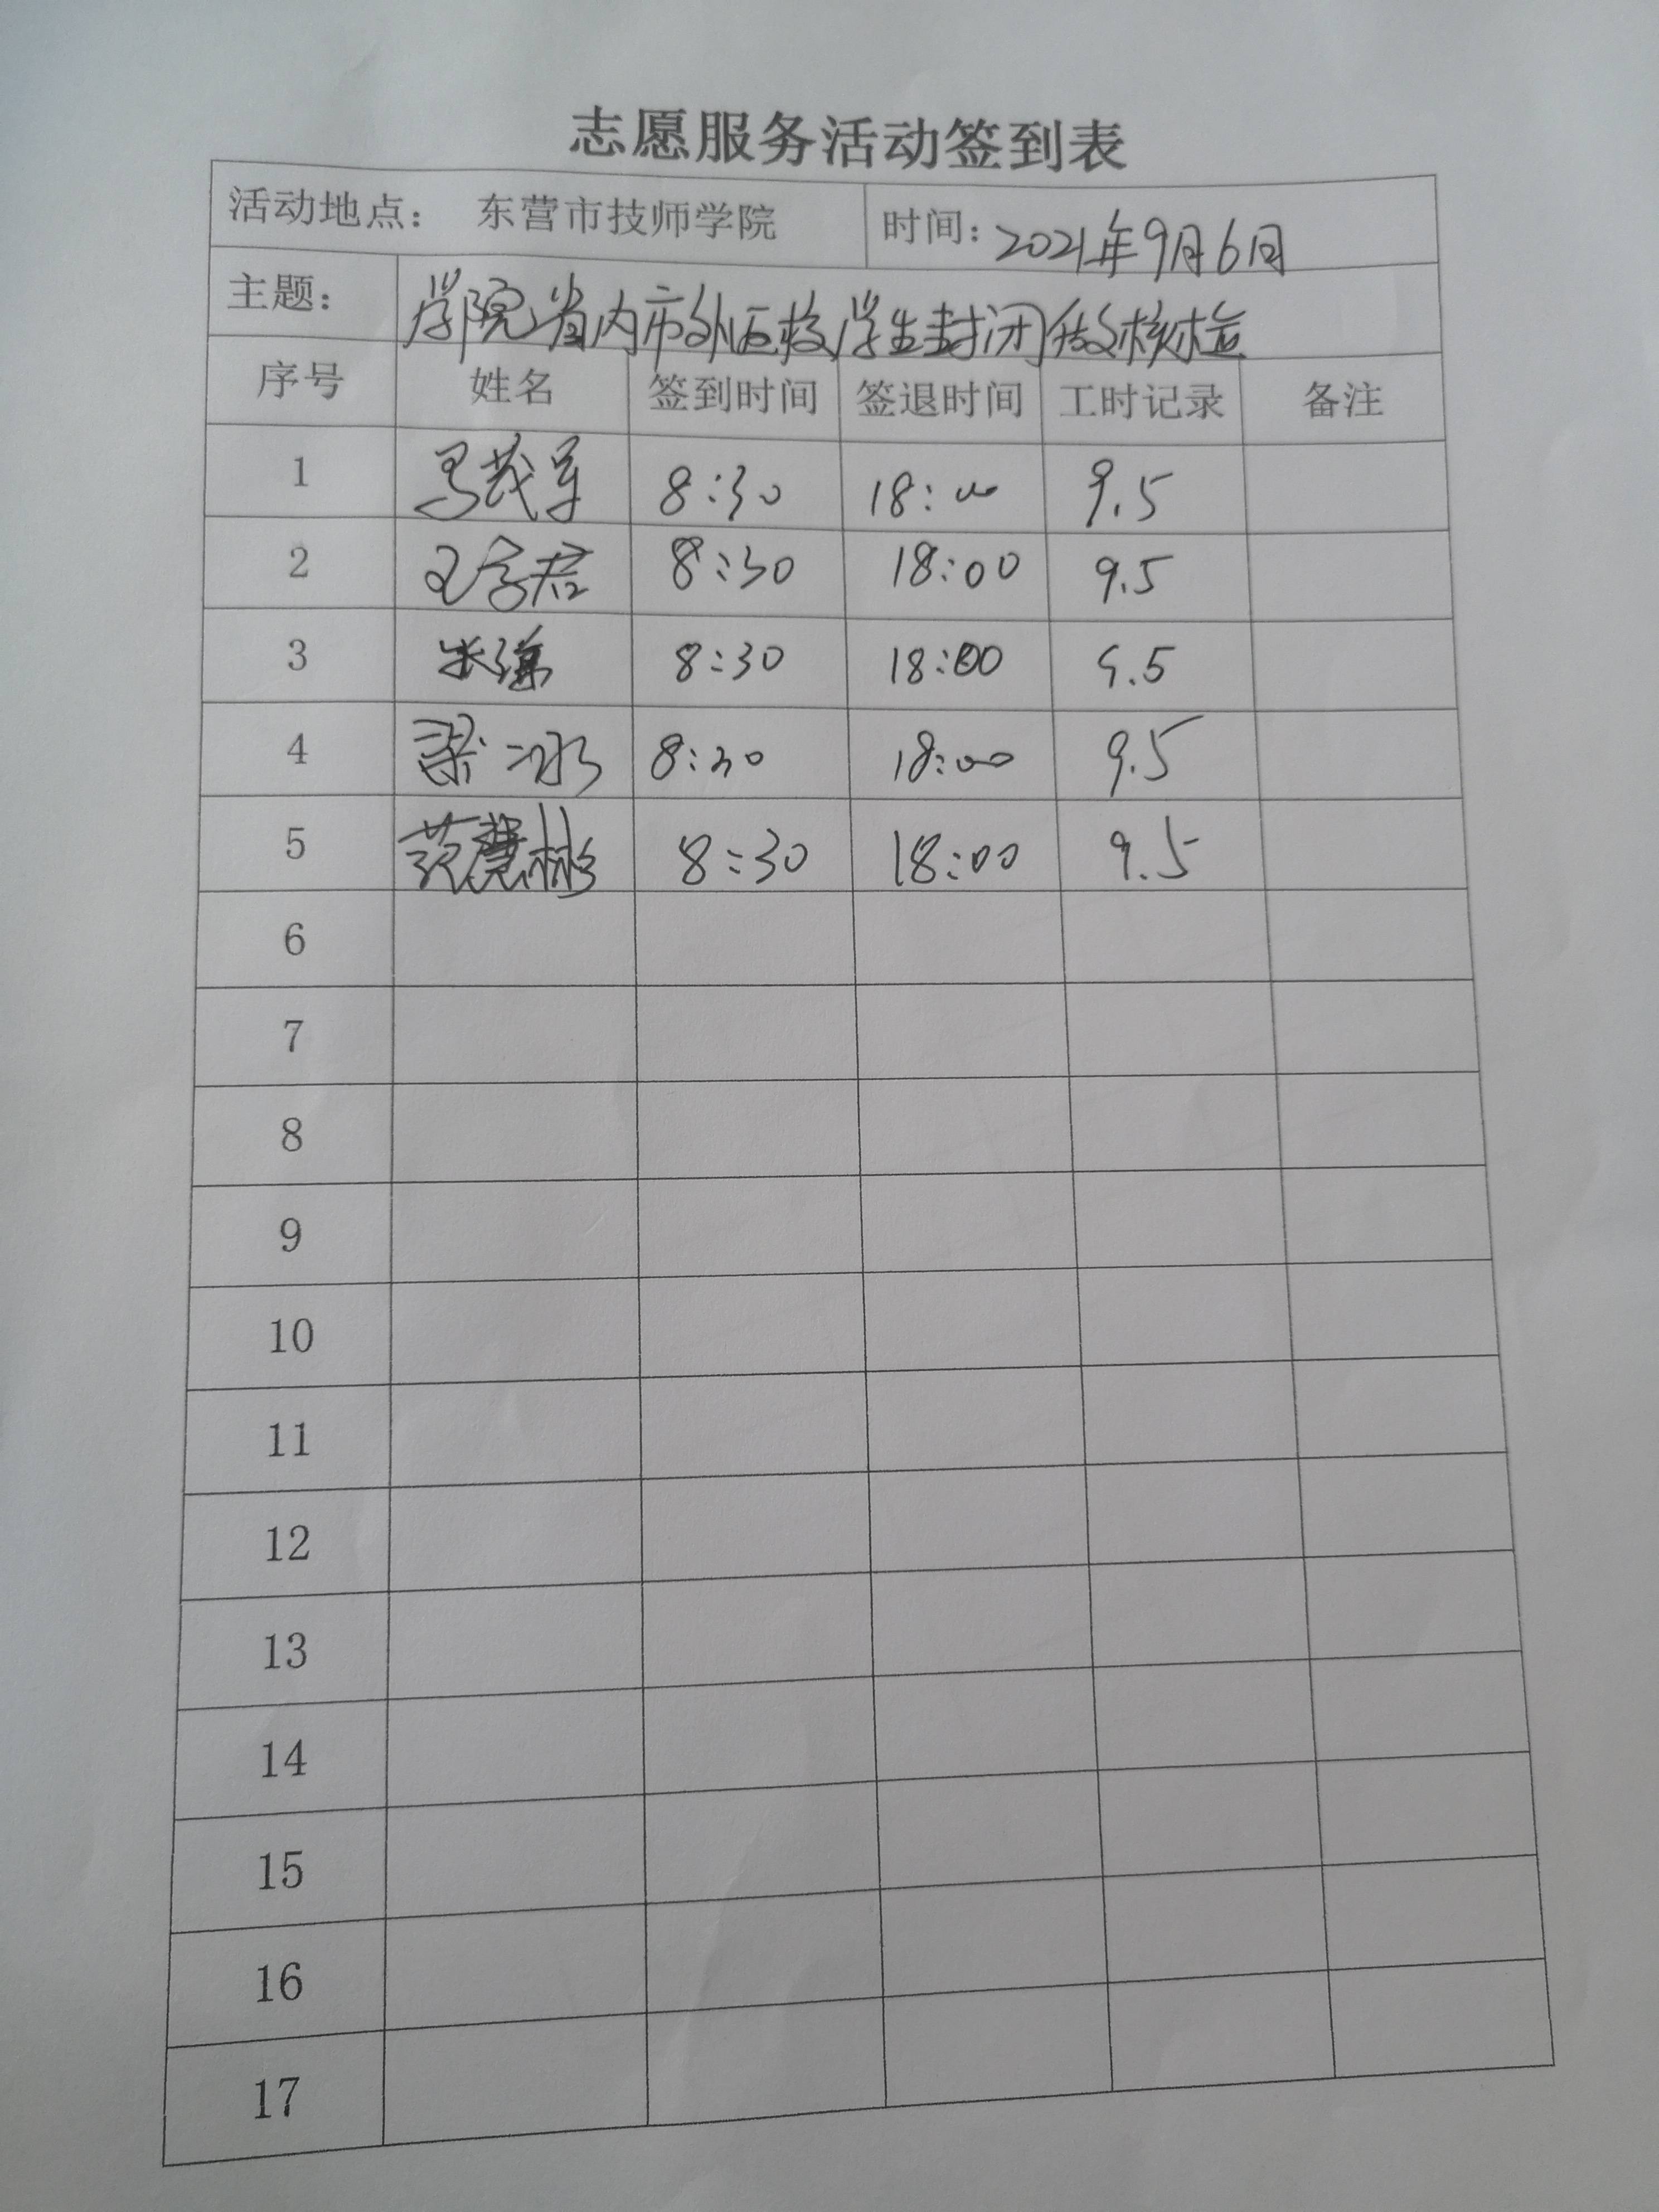 志愿服务活动签到表
活动地点： 东营市技师学院 时间：2021年9月6日
主题： 学院省内市外返校学生封闭做核检
序号 姓名 签到时间 签退时间 工时记录 备注
1 马茂军 8:30 18:00 9.5
2 8:30 18:00 9.5
3 8:30 18:00 9.5
4 梁冰 8:30 18:00 9.5
5 范慧彬 8:30 18:00 9.5
6
7
8
9
10
11
12
13
14
15
16
17